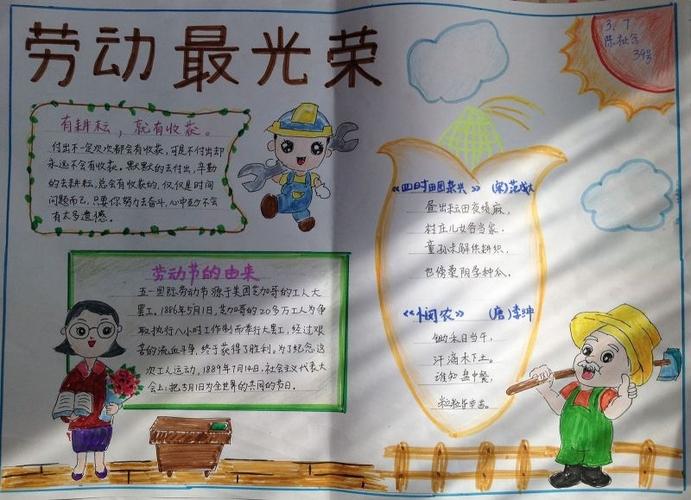 劳动最光荣
3.7
39号
有耕耘，就有收获。
付出不一定次次都会有收获，可是不付出却
永远不会有收获。默默的去付出，辛勤
的去耕耘，总会有收获的，仅仅是时间
问题而已，只要你努力去奋斗，心中也不会
有太多遗憾。
劳动节的由来
五一国际劳动节源于美国芝加哥的工人大
罢工。1886年5月1日，芝加哥的20多万工人为争
取执行八小时工作制而举行大罢工，经过艰
苦的流血斗争，终于获得了胜利。为了纪念这
次工人运动，1889年7月14日，社会主义代表大
会上，把5月1为全世界的共同的节日。
《四时田园杂兴》 (宋)范成大
昼出耘田夜绩麻，
村庄儿女各当家。
童孙未解供耕织，
也傍桑阴学种瓜。
《悯农》 (唐)李绅
锄禾日当午，
汗滴禾下土。
谁知盘中餐，
粒粒皆辛苦。